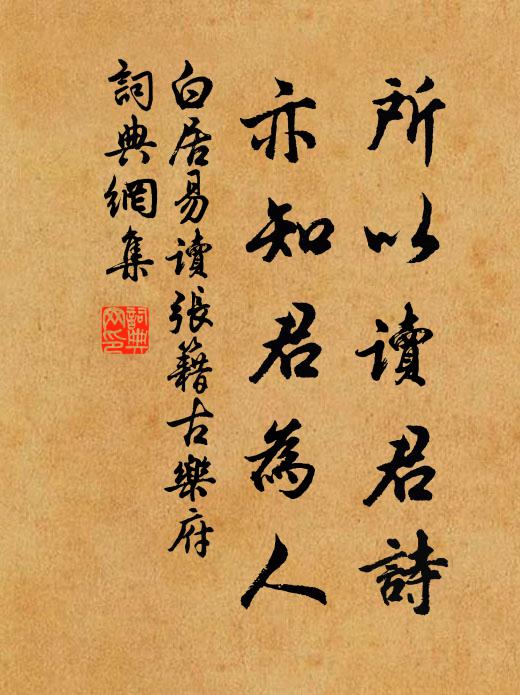 所以讀君詩
亦知君為人
白居易讀張籍古樂府
詞典網集
詞典网印